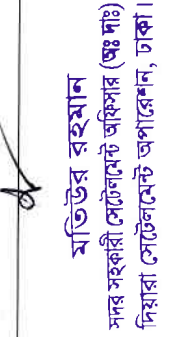 মতিউর রহমান
সদর সহকারী সেটেলমেন্ট অফিসার (অঃ দাঃ)
দিয়ারা সেটেলমেন্ট অপারেশন, ঢাকা।